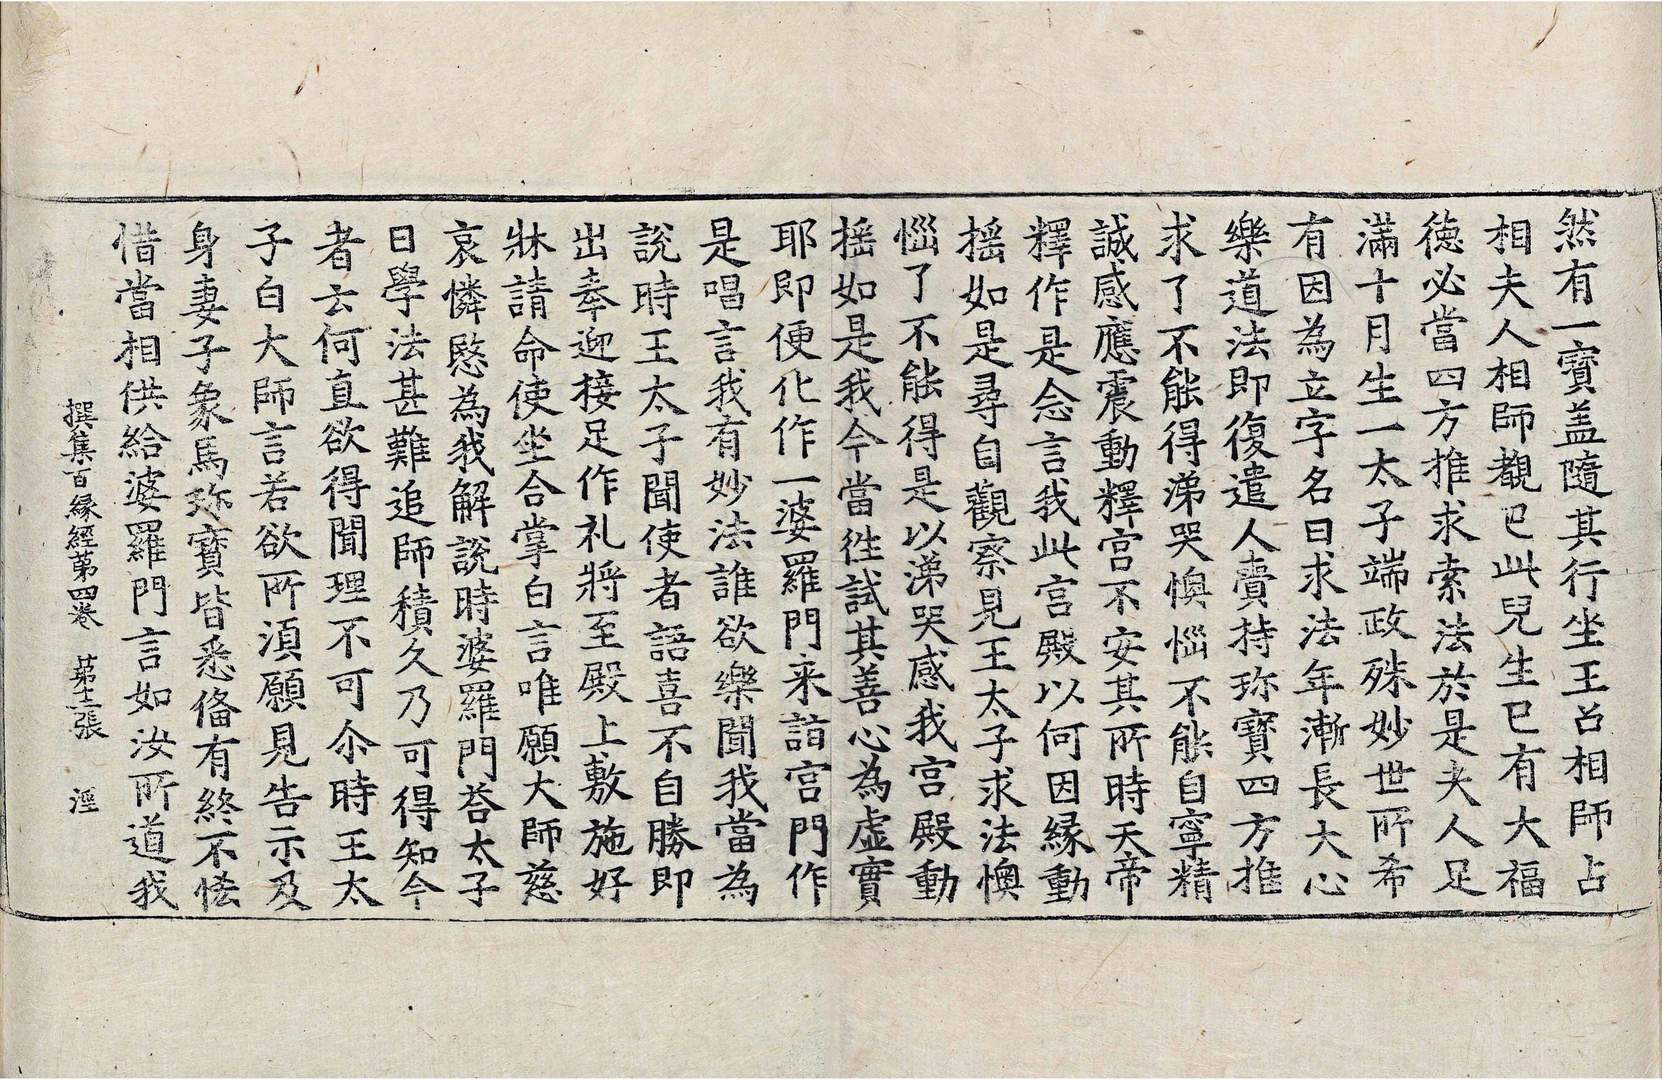 然有一寶盖隨其行坐王召相師占
相夫人相師覩已此兒生已有大福
德必當四方推求索法於是夫人足
滿十月生一太子端政殊妙世所希
有因為立字名曰求法年漸長大心
樂道法即復遣人賷持珎寶四方推
求了不能得涕哭懊惱不能自寧精
誠感應震動釋宫不安其所時天帝
釋作是念言我此宫殿以何因緣動
揺如是尋自觀察見王太子求法懊
惱了不能得是以涕哭感我宫殿動
揺如是我今當往試其善心為虛實
耶即便化作一婆羅門来詣宫門作
是唱言我有妙法誰欲樂聞我當為
說時王太子聞使者語喜不自勝即
出奉迎接足作礼將至殿上敷施好
牀請命使坐合掌白言唯願大師慈
哀憐愍為我解說時婆羅門荅太子
曰學法甚難追師積久乃可得知今
者云何直欲得聞理不可尒時王太
子白大師言若欲所湏願見告示及
身妻子象馬珎寶皆悉俻有終不恡
惜當相供給婆羅門言如汝所道我
撰集百緣經第四卷 第十二張 涇